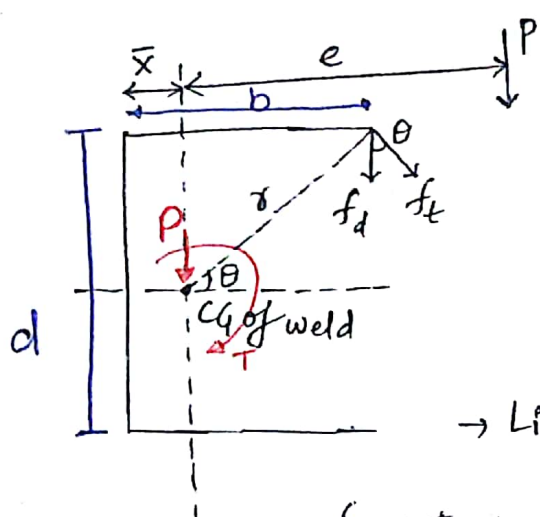 x̄
e
P
b
θ
r
f_d
f_t
P
θ
CG of weld
d
T
→ Li